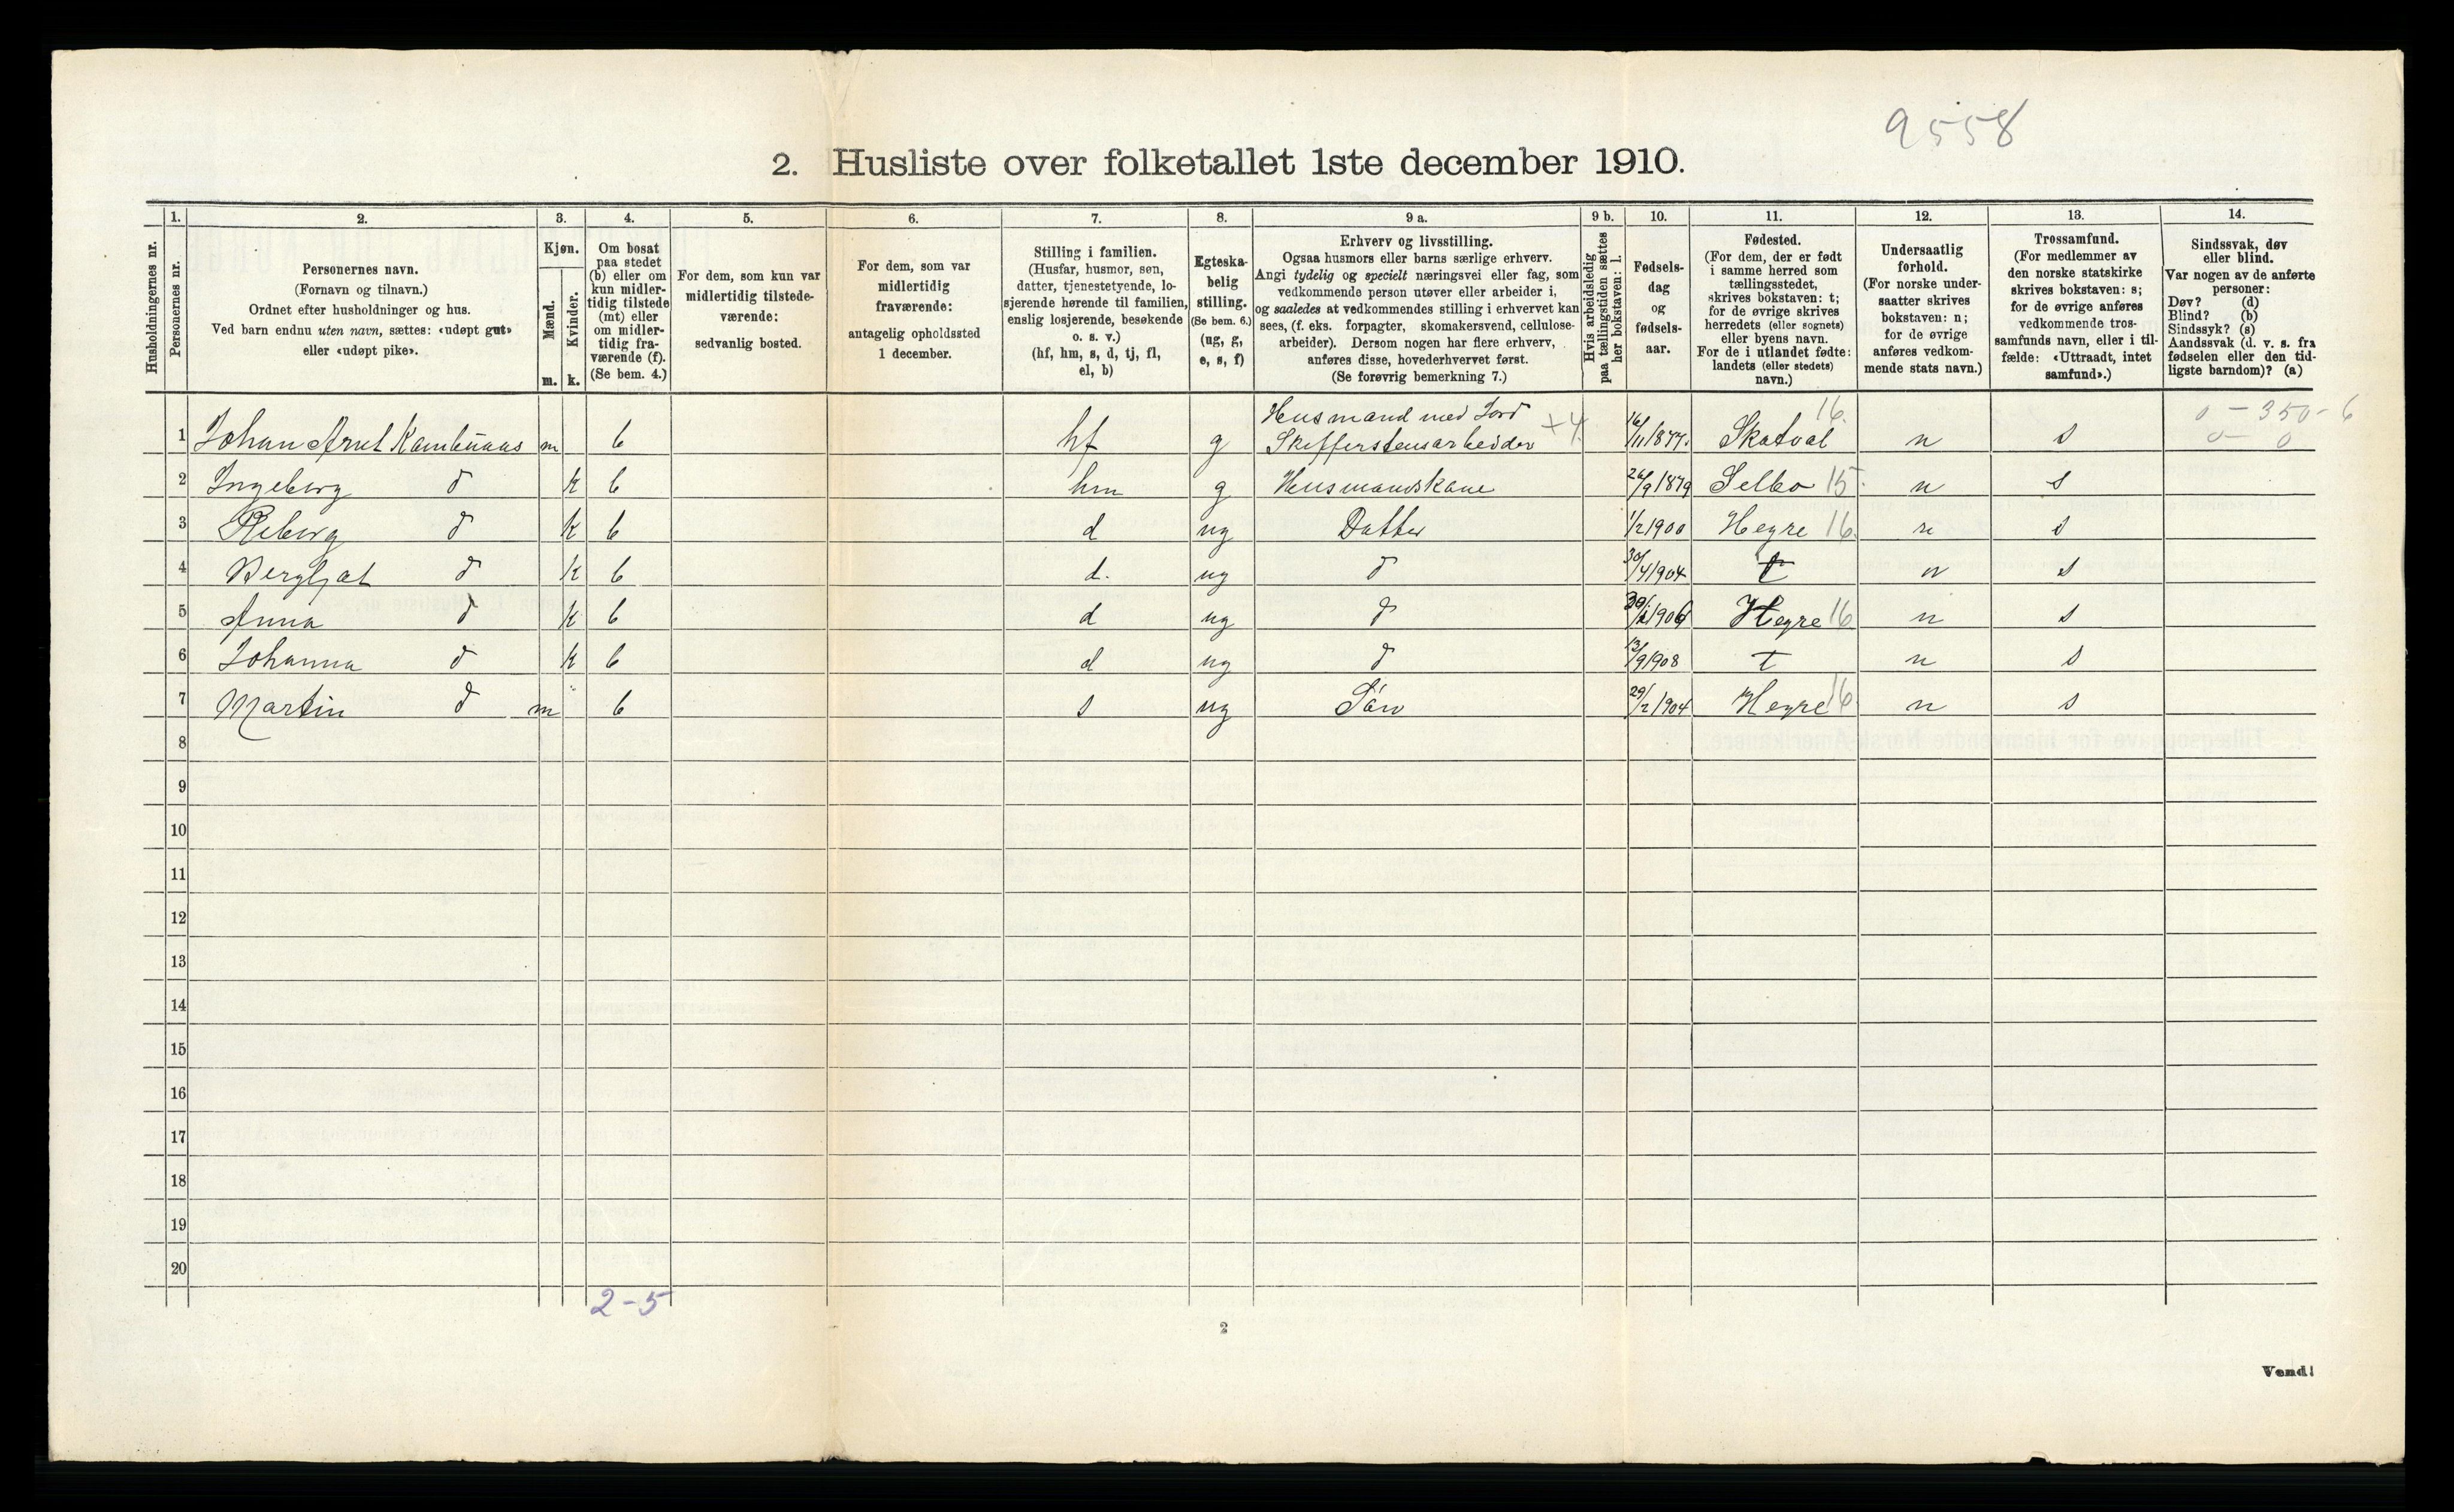 9558
2. Husliste over folketallet 1ste december 1910.
Husholdningernes nr.
1.
Personernes nr.
2.
Personernes navn.
(Fornavn og tilnavn.)
Ordnet efter husholdninger og hus.
Ved barn endnu uten navn, sættes: «udøpt gut»
eller «udøpt pike».
3.
Kjøn.
Mænd.
m.
Kvinder.
k.
4.
Om bosat
paa stedet
(b) eller om
kun midler-
tidig tilstede
(mt) eller
om midler-
tidig fra-
værende (f).
(Se bem. 4.)
5.
For dem, som kun var
midlertidig tilstede-
værende:
sedvanlig bosted.
6.
For dem, som var
midlertidig
fraværende:
antagelig opholdssted
1 december.
7.
Stilling i familien.
(Husfar, husmor, søn,
datter, tjenestetyende, lo-
sjerende hørende til familien,
enslig losjerende, besøkende
o. s. v.)
(hf, hm, s, d, tj, fl,
el, b)
8.
Egteska-
belig
stilling.
(Se bem. 6.)
(ug, g,
e, s, f)
9 a.
Erhverv og livsstilling.
Ogsaa husmors eller barns særlige erhverv.
Angi tydelig og specielt næringsvei eller fag, som
vedkommende person utøver eller arbeider i,
og saaledes at vedkommendes stilling i erhvervet kan
sees, (f. eks. forpagter, skomakersvend, cellulose-
arbeider). Dersom nogen har flere erhverv,
anføres disse, hovederhvervet først.
(Se forøvrig bemerkning 7.)
9 b.
Hvis arbeidsledig
paa tællingstiden sættes
her bokstaven: l.
10.
Fødsels-
dag
og
fødsels-
aar.
11.
Fødested.
(For dem, der er født
i samme herred som
tællingsstedet,
skrives bokstaven: t;
for de øvrige skrives
herredets (eller sognets)
eller byens navn.
For de i utlandet fødte:
landets (eller stedets)
navn.)
12.
Undersaatlig
forhold.
(For norske under-
saatter skrives
bokstaven: n;
for de øvrige
anføres vedkom-
mende stats navn.)
13.
Trossamfund.
(For medlemmer av
den norske statskirke
skrives bokstaven: s;
for de øvrige anføres
vedkommende tros-
samfunds navn, eller i til-
fælde: «Uttraadt, intet
samfund».)
14.
Sindssvak, døv
eller blind.
Var nogen av de anførte
personer:
Døv? (d)
Blind? (b)
Sindssyk? (s)
Aandssvak (d. v. s. fra
fødselen eller den tid-
ligste barndom)? (a)
Husmand med Jord 16. 0 - 350 - 6
1 Johan Arnt m b hf g Skifferstensarbeider +4. 16/11 1877. Skatval n s 0 - 0
2 Ingeberg d k b hm g Husmandskone 26/9 1879 Selbo 15. n s
3 d k b d ug Datter 1/2 1900 Hegre 16. n s
4 Bergljot d k b d. ug d 30/4 1904 t n s
5 Anna d k b d ug d 1906 Hegre 16 n s
6 Johanna d k b d ug d 13/9 1908 t n s
7 Martin d m b s ug Sön 29/2 1904 Hegre 16 n s
8
9
10
11
12
13
14
15
16
17
18
19
20
2-5
2
Vend!